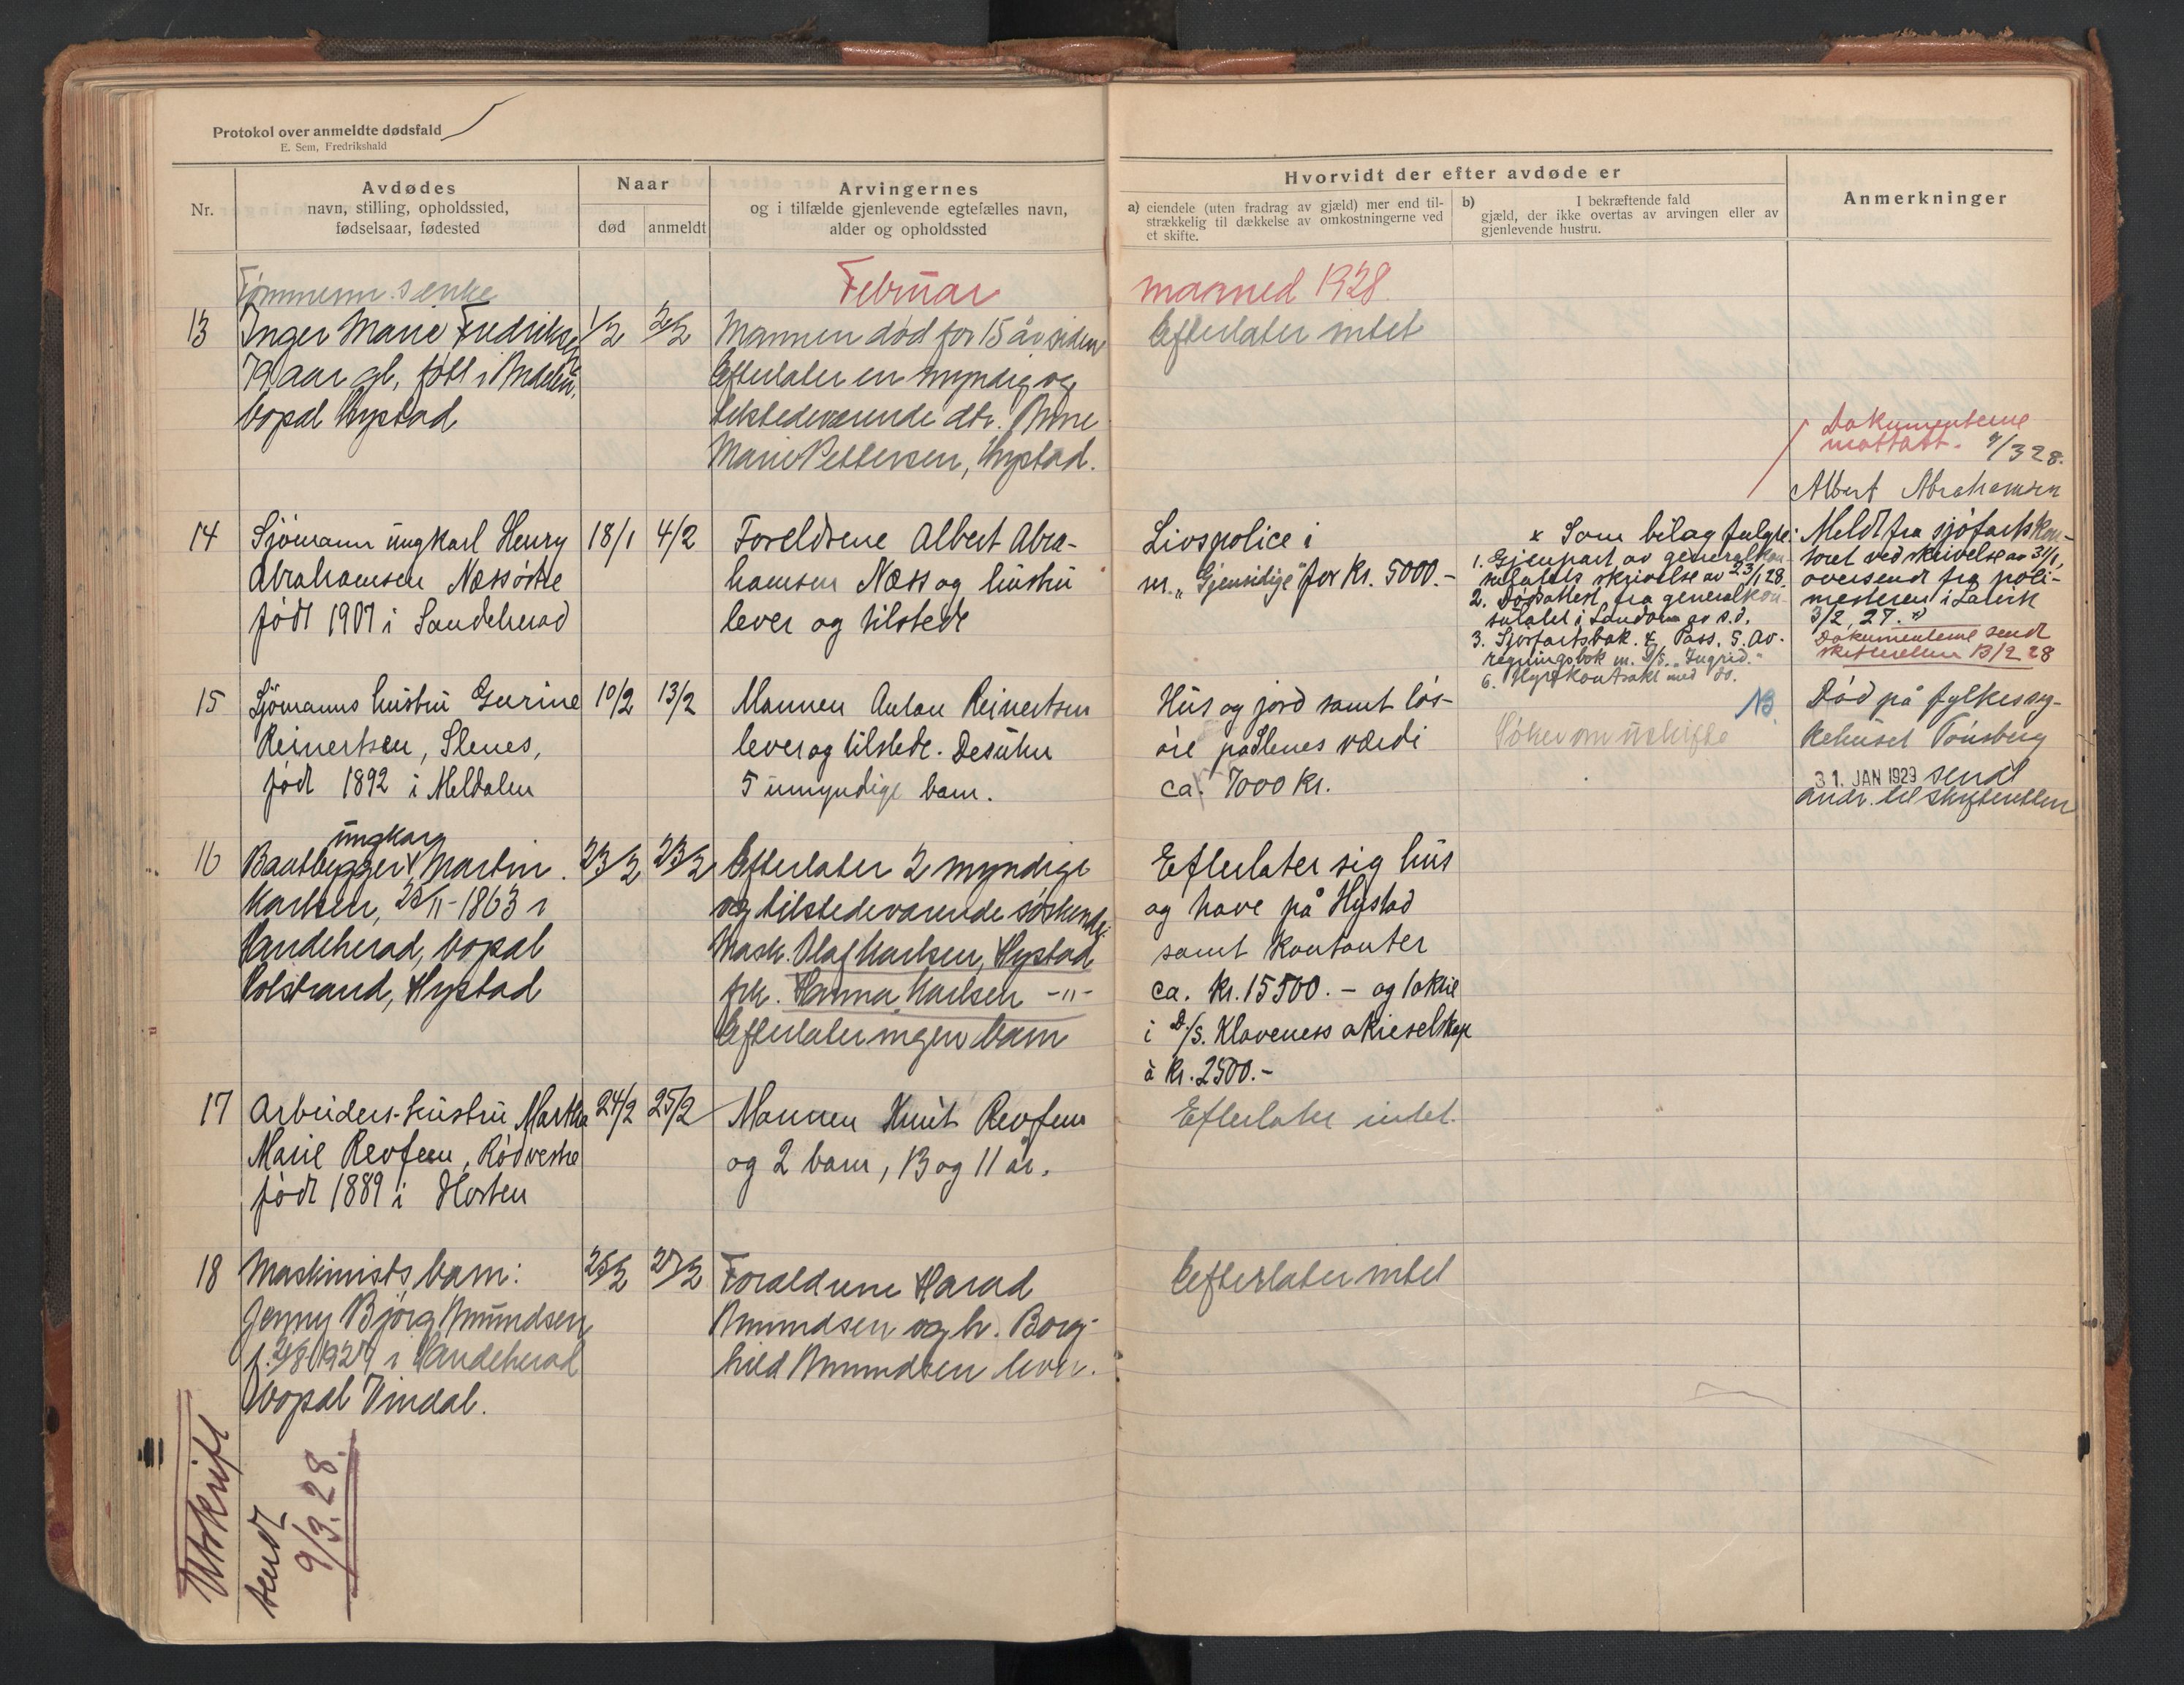 Protokol over anmeldte dødsfald
E. Sem, Fredrikshald
Nr.
Avdødes
navn, stilling, opholdssted,
fødselsaar, fødested
Naar
død
anmeldt
Arvingernes
og i tilfælde gjenlevende egtefælles navn,
alder og opholdssted
Hvorvidt der efter avdøde er
a) eiendele (uten fradrag av gjæld) mer end til-
strækkelig til dækkelse av omkostningerne ved
et skifte.
b) I bekræftende fald
gjæld, der ikke overtas av arvingen eller av
gjenlevende hustru.
Anmerkninger
Februar
maaned 1928.
Tømmerm.s enke
13 Inger Marie Fredriksen
79 aar gl, født i Andebu,
bopæl Hystad
1/2
2/2
Mannen død for 15 år siden
Efterlater en myndig og
tilstedeværende dtr. Anne
Marie Pettersen, Hystad.
Efterlater intet
Dokumenterne
mottatt. 9/3 28.
Albert Abrahamsen
14 Sjømann ungkarl Henry
Abrahamsen Næss østre
født 1907 i Sandeherad
18/1
4/2
Foreldrene Albert Abra-
hamsen Næss og hustru
lever og tilstede
Livspolice i
m. "Gjensidige" for kr. 5000.-
x Som bilag fulgte:
1. Gjenpart av generalkon-
sulatets skrivelse av 23/1 28.
2. Dødsattest fra generalkon-
sulatet i London av s.d.
3. Sjøfartsbok. 4. Pass. 5. Av-
regningsbok m. D/S. "Ingrid."
6. Hyrekontrakt med do.
Meldt fra sjøfartskon-
toret ved skrivelse av 31/1,
oversendt fra poli-
mesteren i Larvik
3/2, 27. "
Dokumenterne sendt
skifteretten 13/2 28
15 Sjømanns hustru Gurine
Reinertsen, Slenes,
født 1892 i Meldalen
10/2
13/2
Mannen Anton Reinertsen
lever og tilstede. Desuten
5 umyndige barn.
Hus og jord samt løs-
øre på Slenes værdi
ca. 7000 kr.
Søker om uskifte
NB
Død på fylkessy-
kehuset Tønsberg
31. JAN 1929 sendt
andr. til skifteretten
16 Baatbygger, ungkar Martin
Karlsen, 25/11-1863 i
Sandeherad, bopæl
Solstrand, Hystad
23/2
23/2
Efterlater 2 myndige
og tilstedeværende søskende:
Mask. Olaf Karlsen, Hystad
frk. Hanna Karlsen -"-
Efterlater ingen barn
Efterlater sig hus
og have på Hystad
samt kontanter
ca. kr. 15500.- og 1 aktie
i D/S. Klaveness aktieselskap
à kr. 2500.-
17 Arbeiders hustru Martha
Marie Revfem, Rød vestre
født 1889 i Horten
24/2
25/2
Mannen Knut Revfem
og 2 barn, 13 og 11 år.
Efterlater intet.
18 Maskinists barn:
Jenny Bjørg Amundsen
f. 2/8 1927 i Sandeherad
bopæl Vindal.
25/2
27/2
Forældrene Harad
Amundsen og h. Borg-
hild Amundsen lever.
Efterlater intet
Utskrift
sendt
9/3. 28.